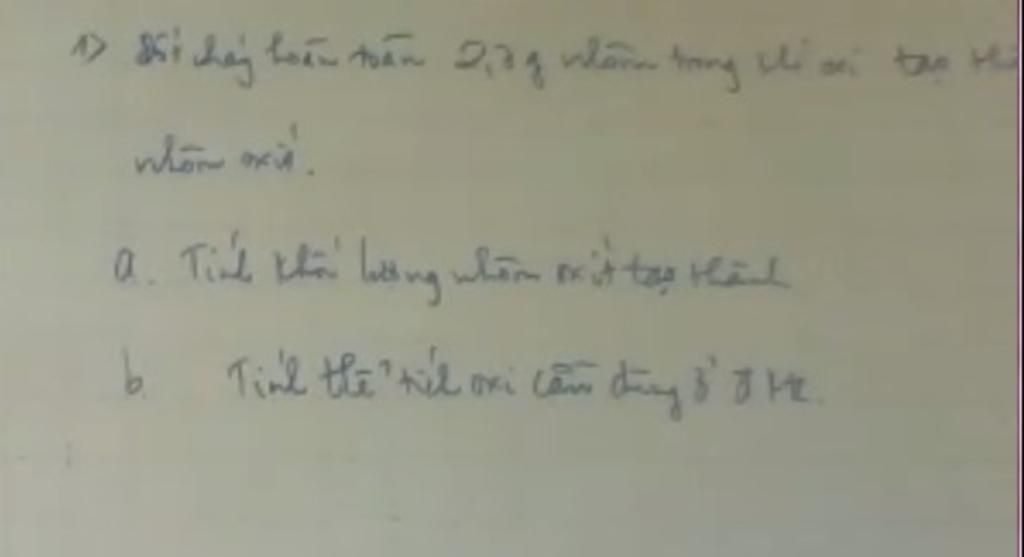 1) Đốt cháy hoàn toàn 2,7g nhôm trong khí oxi tạo
nhôm oxit.
a. Tính khối lượng nhôm oxit tạo thành
b. Tính thể tích oxi cần dùng ở đktc.